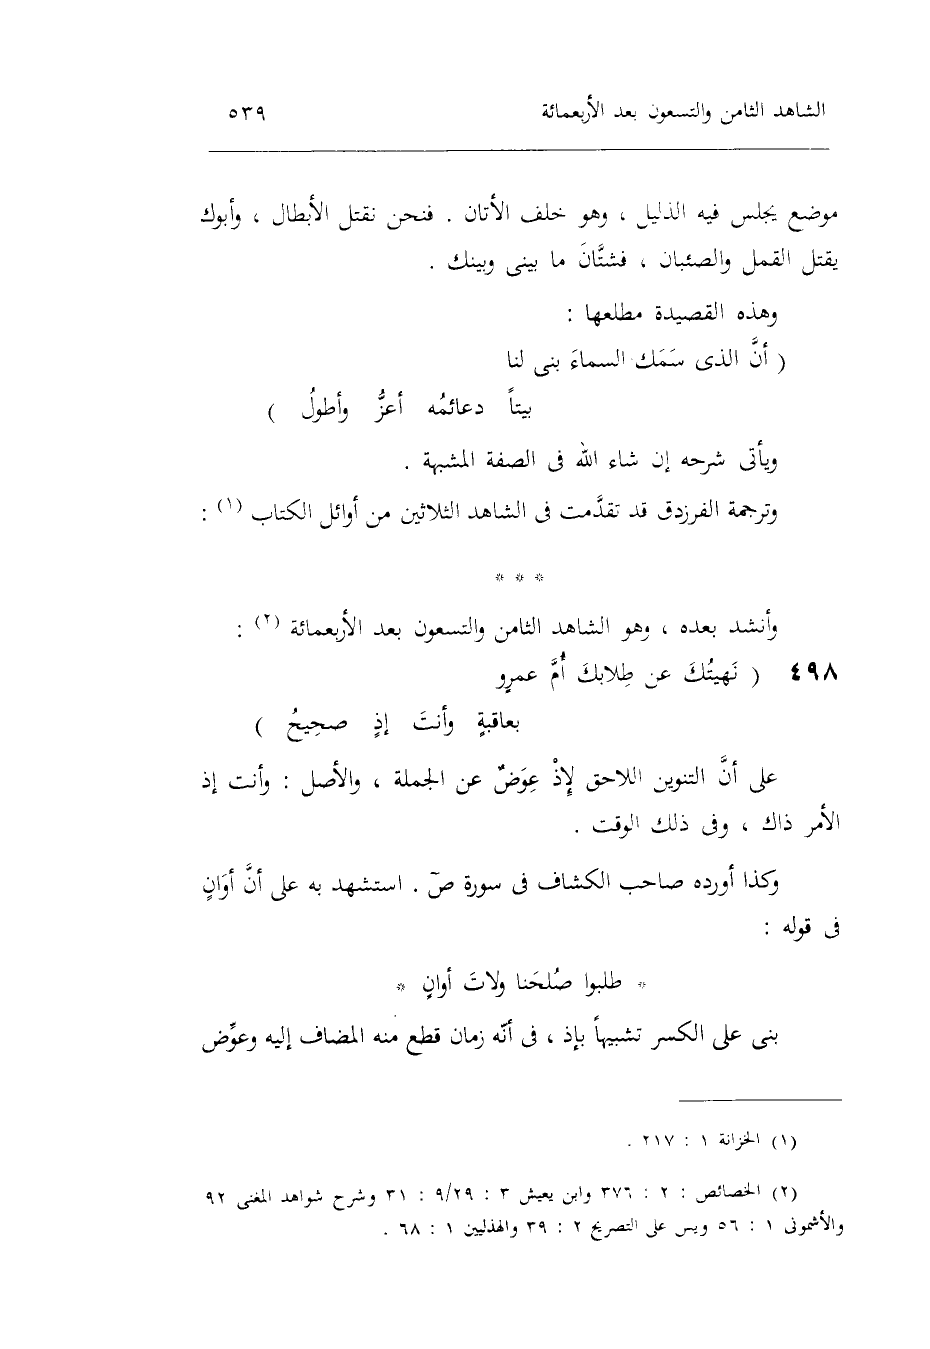 الشاهد الثامن والتسعون بعد الأربعمائة ٥٣٩
موضع يجلس فيه الذليل ، وهو خلف الأتان . فنحن نقتل الأبطال ، وأبوك
يقتل القمل والصئبان ، فشتَّانَ ما بينى وبينك .
وهذه القصيدة مطلعها :
( أنَّ الذى سَمَك السماءَ بنى لنا
بيتاً دعائمُه أعزُّ وأطولُ )
ويأتى شرحه إن شاء الله فى الصفة المشبهة .
وترجمة الفرزدق قد تقدَّمت فى الشاهد الثلاثين من أوائل الكتاب (١) :
* * *
وأنشد بعده ، وهو الشاهد الثامن والتسعون بعد الأربعمائة (٢) :
٤٩٨ ( نَهيتُكَ عن طِلابكَ أُمَّ عمرٍو
بعاقبةٍ وأنتَ إذٍ صحِيحُ )
على أنَّ التنوين اللاحق لِإذْ عِوَضٌ عن الجملة ، والأصل : وأنت إذ
الأمر ذاك ، وفى ذلك الوقت .
وكذا أورده صاحب الكشاف فى سورة صٓ . استشهد به على أنَّ أوَانٍ
فى قوله :
* طلبوا صُلحَنا ولاتَ أوانٍ *
بنى على الكسر تشبيهاً بإذ ، فى أنّه زمان قطع منه المضاف إليه وعوِّض
(١) الخزانة ١ : ٢١٧ .
(٢) الخصائص : ٢ : ٣٧٦ وابن يعيش ٣ : ٩/٢٩ : ٣١ وشرح شواهد المغنى ٩٢
والأشمونى ١ : ٥٦ ويس على التصريح ٢ : ٣٩ والهذليين ١ : ٦٨ .